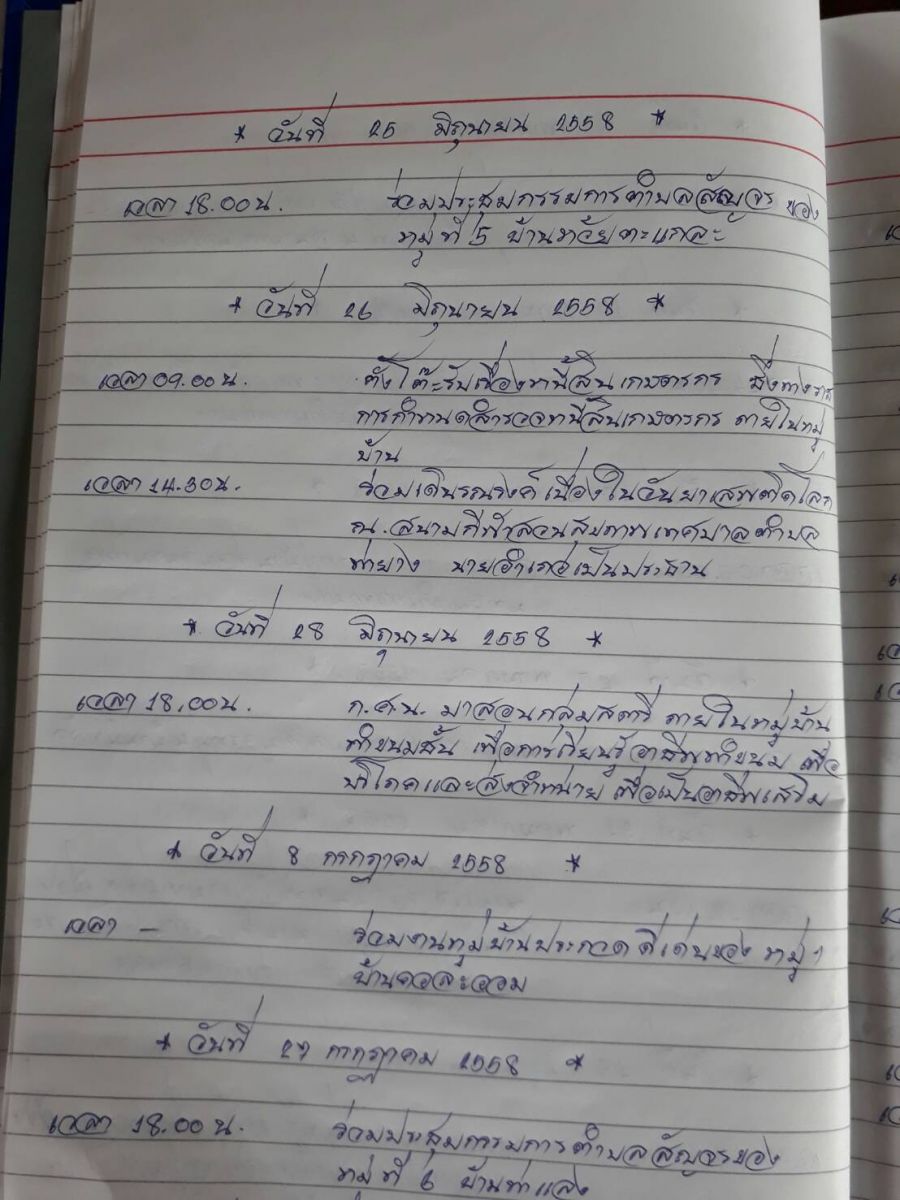 * วันที่ 25 มิถุนายน 2558 *
เวลา 18.00 น. ร่วมประชุมกรรมการตำบลสัญจร ของ
หมู่ที่ 5 บ้านห้วยตะแกละ
* วันที่ 26 มิถุนายน 2558 *
เวลา 09.00 น. ตั้งโต๊ะรับเรื่องหนี้สินเกษตรกร ซึ่งทางราช
การกำหนดสำรวจหนี้สินเกษตรกร ภายในหมู่
บ้าน
เวลา 14.30 น. ร่วมเดินรณรงค์ เนื่องในวันยาเสพติดโลก
ณ. สนามกีฬาสวนสุขภาพเทศบาลตำบล
ท่ายาง นายอำเภอเป็นประธาน
* วันที่ 28 มิถุนายน 2558 *
เวลา 18.00 น. ก.ศ.น. มาสอนกลุ่มสตรี ภายในหมู่บ้าน
ทำขนมชั้น เพื่อการเรียนรู้อาชีพทำขนม เพื่อ
บริโภคและส่งจำหน่าย เพื่อเป็นอาชีพเสริม
* วันที่ 8 กรกฎาคม 2558 *
เวลา - ร่วมงานหมู่บ้านประกวดดีเด่นของ หมู่ 1
* วันที่ 27 กรกฎาคม 2558 *
เวลา 18.00 น. ร่วมประชุมกรรมการตำบลสัญจรของ
หมู่ที่ 6 บ้านท่าแลง